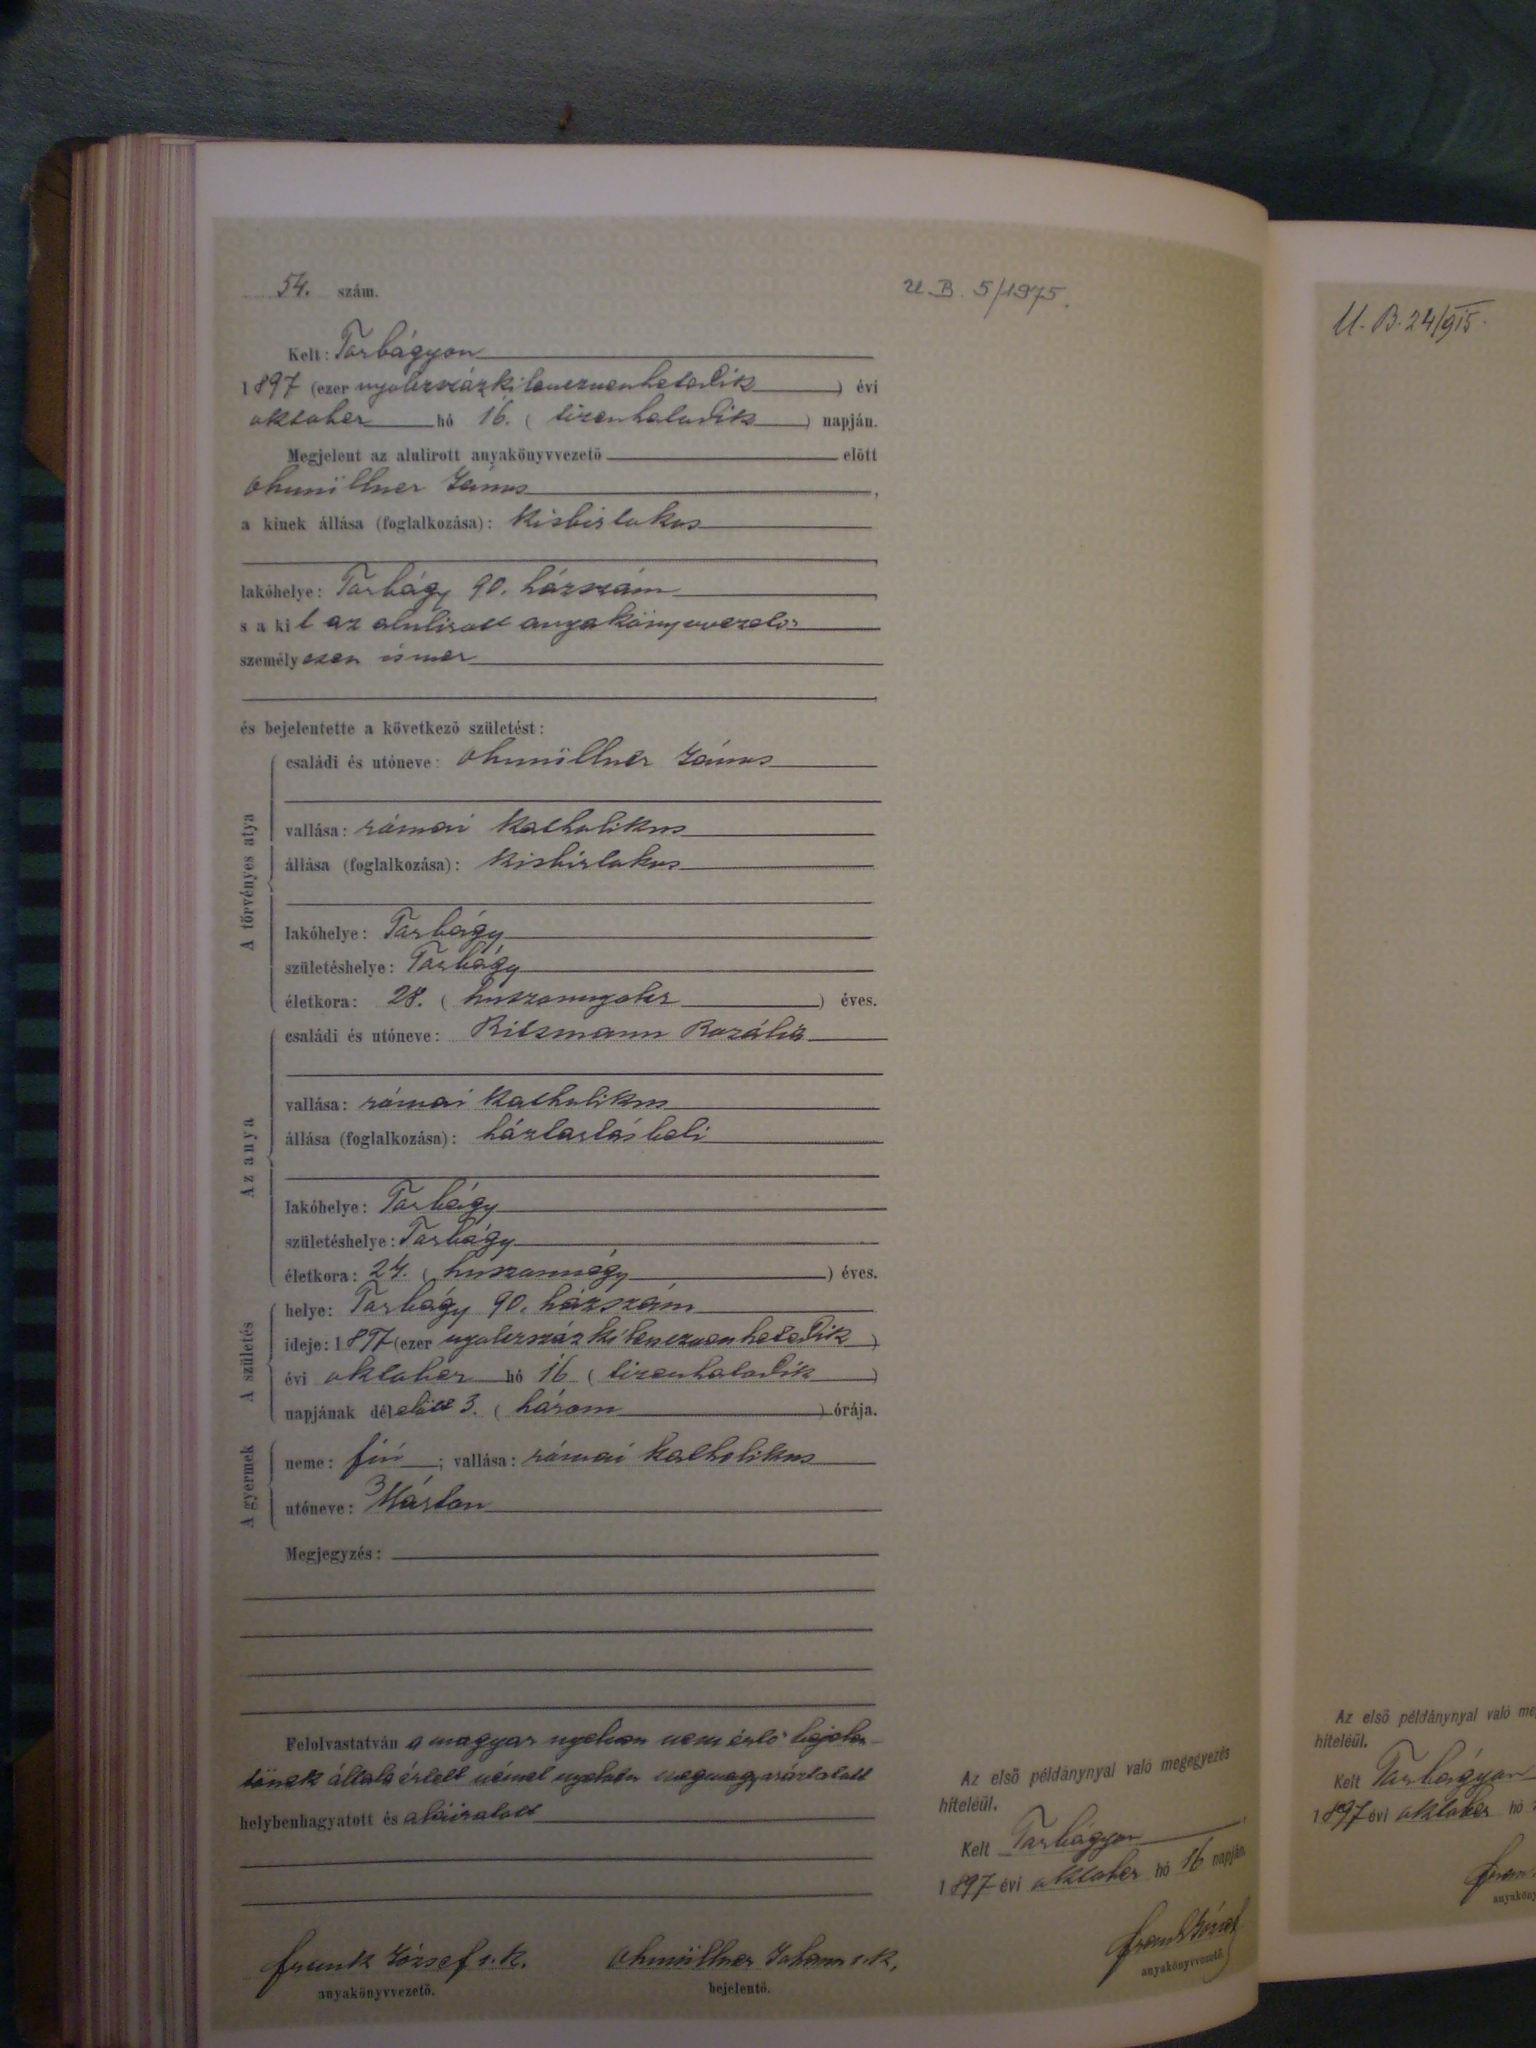 54. szám.
U. B. 5/1975.
Kelt: Torbágyon
1897 (ezer nyolczszázkilenczvenhetedik) évi
oktober hó 16. (tizenhatodik) napján.
Megjelent az alulirott anyakönyvvezető előtt
Ohmüllner János,
a kinek állása (foglalkozása): kisbirtokos
lakóhelye: Torbágy 90. házszám,
s a kit az alulirott anyakönyvvezető
személyesen ismer
és bejelentette a következő születést:
A törvényes atya
családi és utóneve: Ohmüllner János
vallása: római katholikus
állása (foglalkozása): kisbirtokos
lakóhelye: Torbágy
születéshelye: Torbágy
életkora: 28. (huszonnyolcz) éves.
Az anya
családi és utóneve: Ritzmann Rozália
vallása: római katholikus
állása (foglalkozása): háztartásbeli
lakóhelye: Torbágy
születéshelye: Torbágy
életkora: 24. (huszonnégy) éves.
A születés
helye: Torbágy 90. házszám
ideje: 1897 (ezer nyolczszázkilenczvenhetedik)
évi oktober hó 16 (tizenhatodik)
napjának délelőtt 3. (három) órája.
A gyermek
neme: fiú; vallása: római katholikus
utóneve: Márton
Megjegyzés:
Felolvastatván a magyar nyelven nem értő bejelen-
tőnek általa értett német nyelven megmagyaráztatott
helybenhagyatott és aláiratott
Frank József s. k.
anyakönyvvezető.
Ohmüllner Johann s. k.
bejelentő.
Az első példánynyal való megegyezés
hiteléül.
Kelt Torbágyon
1897 évi oktober hó 16 napján
Frank József
anyakönyvvezető
U. B. 24/915.
Az első példánynyal való
hiteléül.
Kelt Torbágyon
1897 évi oktober hó